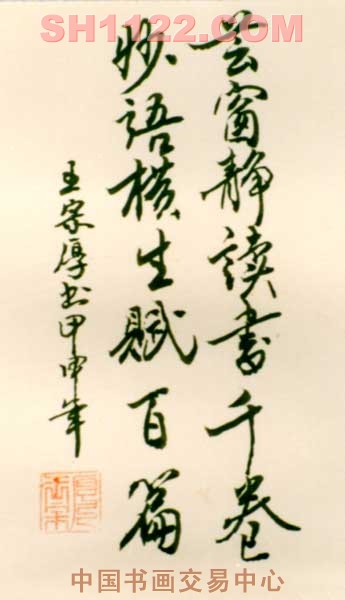 SH1122.COM
芸窗静读书千卷
妙语横生赋百篇
王宗厚书甲申年
中国书画交易中心